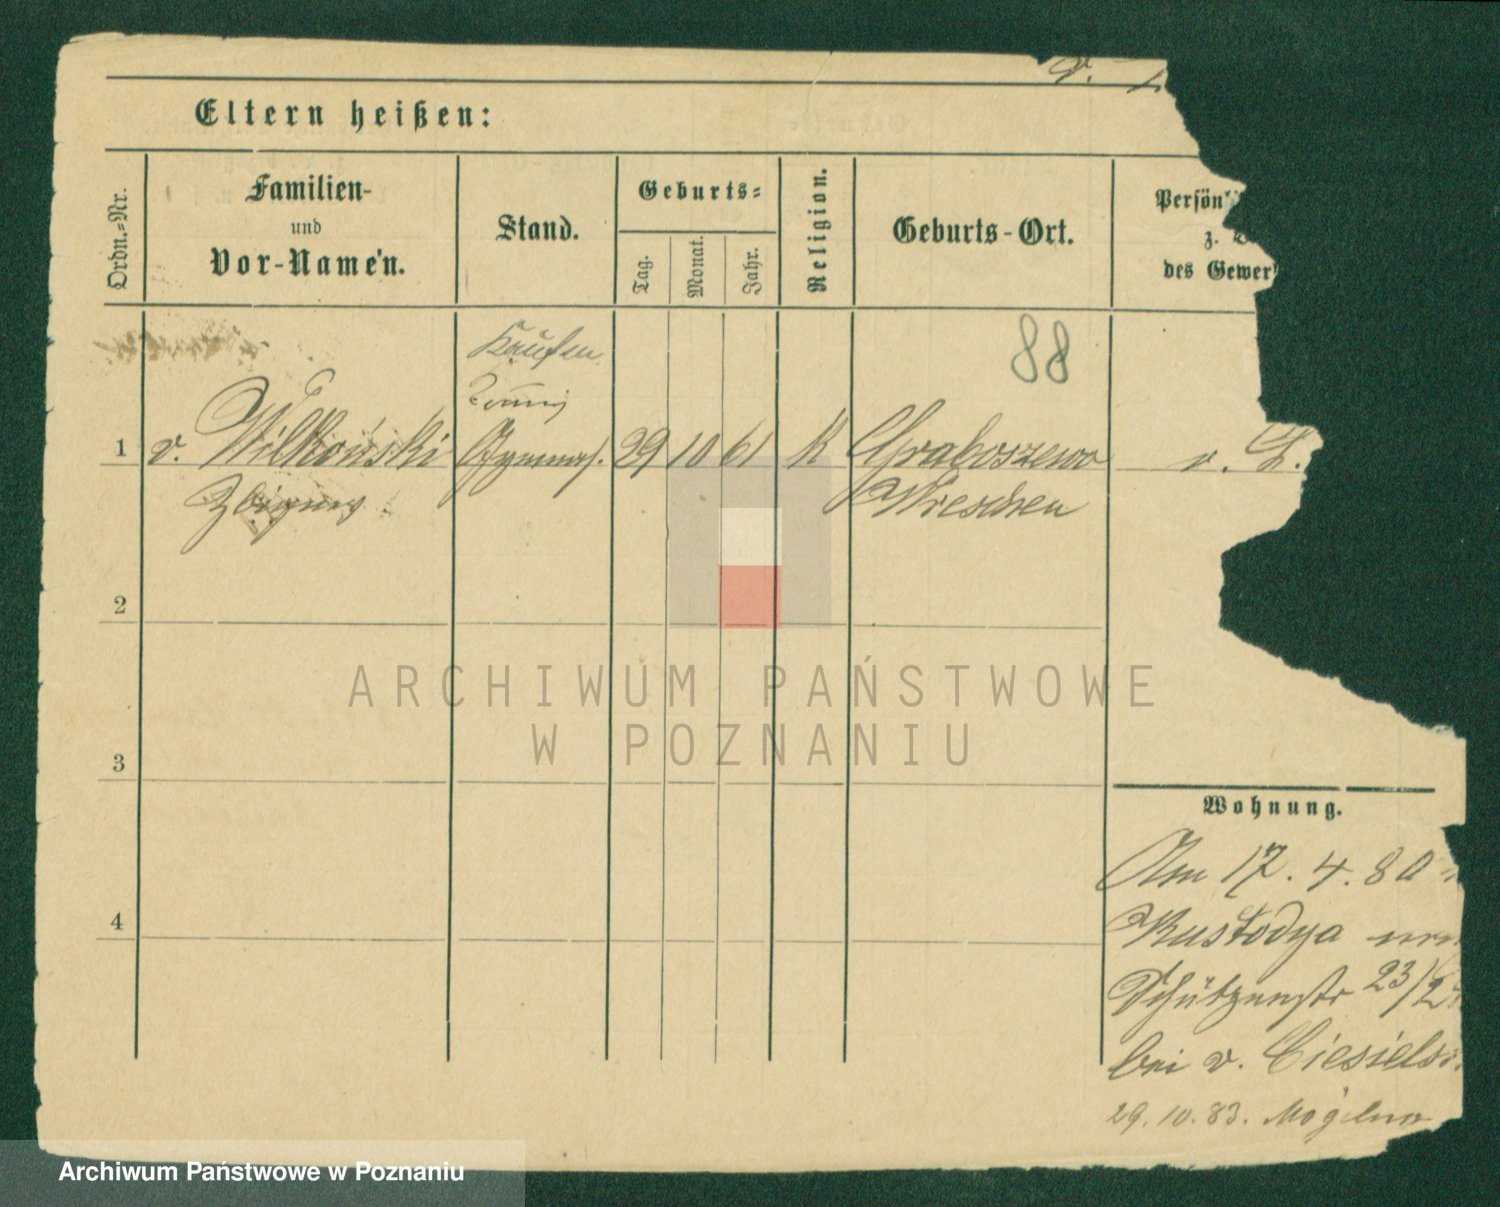 Eltern heißen:
Ordn.-Nr.
Familien-
und
Vor-Namen.
Stand.
Geburts-
Tag.
Monat.
Jahr.
Religion.
Geburts-Ort.
Persön
z.
des Gewer
88
1 v. Wilkoński Gymnas. 29 10 61 K Graboszewo v.
Zbigniew Wreschen
2
3
4
Wohnung.
Am 17. 4. 80
Kustodya
Schützenstr 23/2
bei v. Ciesiels
29. 10. 83. Mogilno
ARCHIWUM PAŃSTWOWE
W POZNANIU
Archiwum Państwowe w Poznaniu